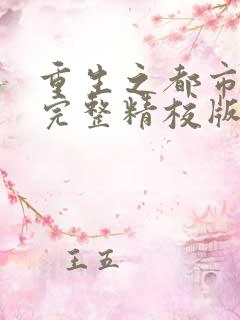 重生之都市
完整精校版
王五